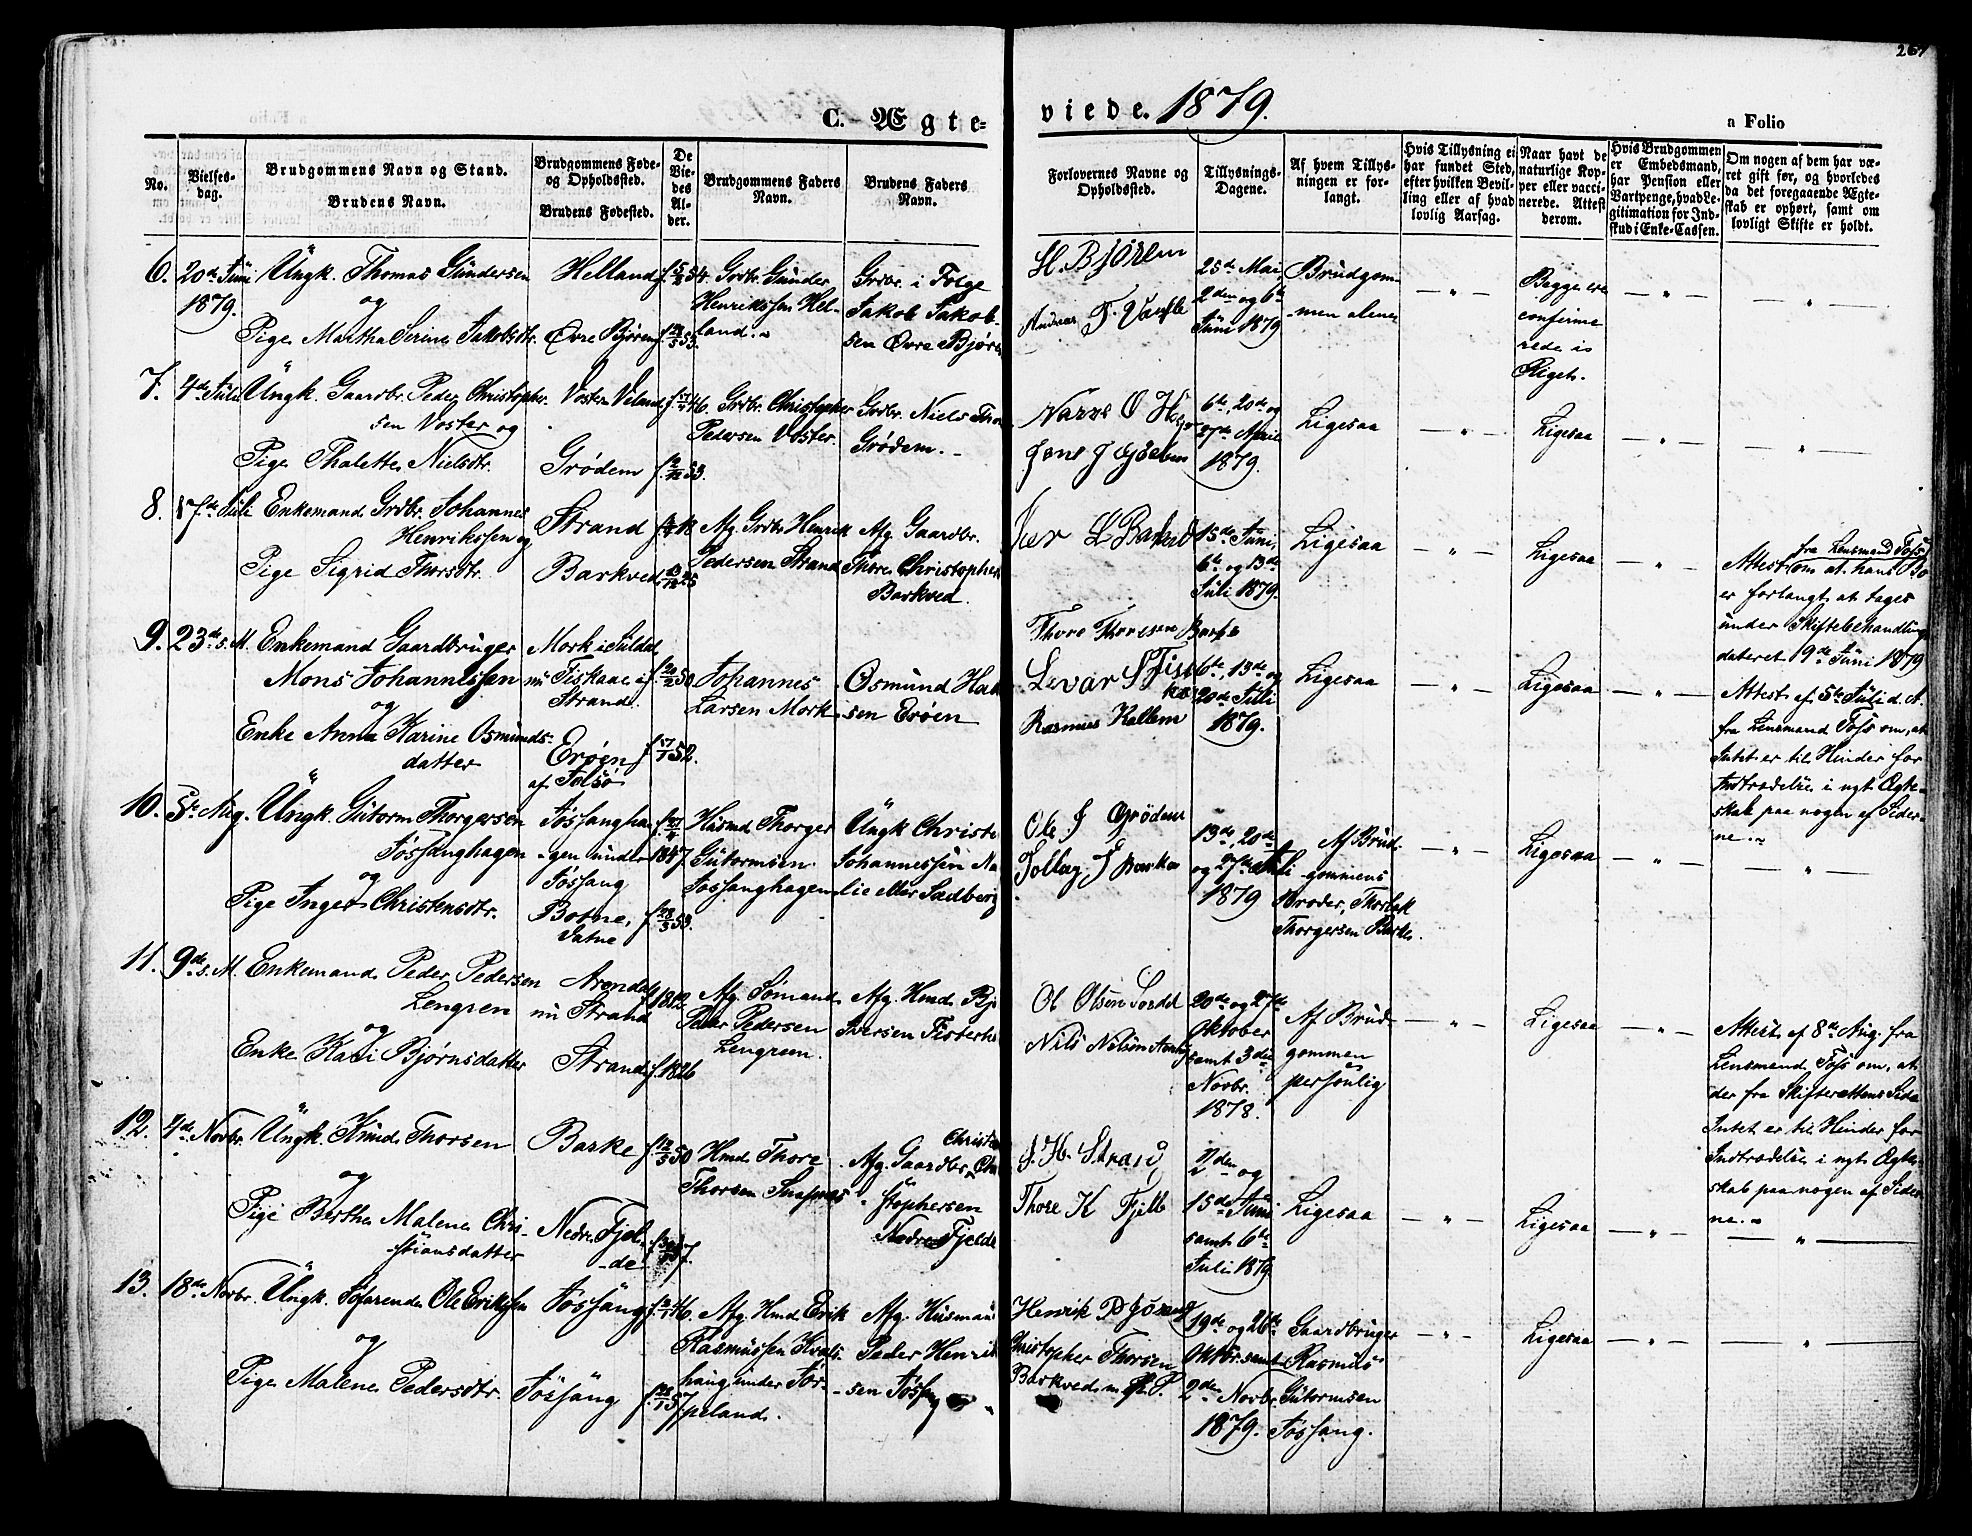 267
C. Ægte-
viede. 1879.
a Folio
No.
Vielses-
dag.
Brudgommens Navn og Stand.
Brudens Navn.
Brudgommens Føde-
og Opholdssted.
Brudens Fødested.
De
Vie-
des
Al-
der.
Brudgommens Faders
Navn.
Brudens Faders
Navn.
Forlovernes Navne og
Opholdssted.
Tillysnings-
Dagene.
Af hvem Tillys-
ningen er for-
langt.
Hvis Tillysning ei
har fundet Sted,
efter hvilken Bevil-
ling eller af hvad
lovlig Aarsag.
Naar havt de
naturlige Kop-
per eller vacci-
nerede. Attest
derom.
Hvis Brudgommen
er Embedsmand,
har Pension eller
Vartpenge, hvad Le-
gitimation for Ind-
skud i Enke-Cassen.
Om nogen af dem har væ-
ret gift før, og hvorledes
da det foregaaende Ægte-
skab er ophørt, samt om
lovligt Skifte er holdt.
6. 20de Juni
1879.
Ungk. Thomas Gundersen
og
Pige Martha Serine Jakobsdtr.
Helland
Øvre Bjøren
Grdbr. Gunder
Henriksen Hel-
land.
Grdbr. i Følge
Jakob Jakob-
sen Øvre Bjøren
H. Bjøren
25de Mai,
2den og 6te
Juni 1879
Brudgom-
men alene
Begge ere
confirme
rede i
Riget.
7. 4de Juli
Ungk. Gaardbr. Peder Christopher-
sen Voster og
Pige Thalette Nielsdtr.
Voster Veland
Grødem
Grdbr. Christopher
Pedersen Voster.
Grdbr. Niels
Grødem.
6te, 20de og
27de April
1879.
Ligesaa
Ligesaa
8. 17de Juli
Enkemand Grdbr. Johannes
Henriksen og
Pige Sigrid Thorsdtr.
Strand
Barkved
Afg. Grdbr. Henrik
Pedersen Strand
Afg. Gaardbr.
Thore Christophers
Barkved.
15de Juni,
6te og 13de
Juli 1879.
Ligesaa
Ligesaa
fra Lensmand Tøfs
Attest om at hans Bo
er forlangt at tages
under Skiftebehandling
dateret 19de Juni 1879
9. 23de s. M.
Enkemand Gaardbruger
Mons Johannessen
og
Enke Anna Karine Osmunds-
datter
Mork i Suldal
nu Fiskaae af
Strand.
Erøen
af Jelsø
Johannes
Larsen Mork
Osmund Hak
sen Erøen
Thore Thoresen Barke
Rasmus Kallem
6te, 13de og
20de Juli
1879.
Ligesaa
Ligesaa
Attest af 5te Juli d. A.
fra Lensmand Tøfs om, at
Intet er til Hinder for
Indtrædelse i nyt Ægte-
skab paa nogen af Sider-
ne.
10. 5te Aug.
Ungk. Gutorm Thorgersen
Fossanghagen
og
Pige Inger Christensdtr.
Fossangha-
gen under
Fossang
Botne,
Vatne
1847.
Husmd. Thorger
Gutormsen
Fossanghagen
Ungk Christen
Johannessen Na
lie eller Sadberg
Ole J Grødem
13de, 20de
og 27de Juli
1879
Af Brud-
gommens
Broder, Thorlak
Thorgersen Barke.
Ligesaa
11. 9de s. M.
Enkemand Peder Pedersen
Lengren
og
Enke Kari Bjørnsdatter
Arendal
nu Strand
Strand
1812
f. 1826
Afg. Sømand
Peter Pedersen
Lengreen.
Afg. Hmd.
Iversen Fisterhei
Nils Nilsen
20de og 27de
Oktober
samt 3die
Novbr.
1878.
Af Brud-
gommen
personlig
Ligesaa
Attest af 8de Aug. fra
Lensmand Tøfs om, at
der fra Skifterettens Side
Intet er til Hinder for
Indtrædelse i nyt Ægte-
skab paa nogen af Sider-
ne.
12. 4de Novbr.
Ungk. Knud Thorsen
og
Pige Berthe Malene Chri-
stiansdatter
Barke
Nedre Fjel-
de
Hmd. Thore
Thorsen
Christen
Afg. Gaardbr.
stophersen
Nedre Fjelde
Thore K Fjelde
2den og
15de Juni
samt 6te
Juli 1879.
Ligesaa
Ligesaa
13. 18de Novbr.
Ungk. Søfarende Ole Eriksen
og
Pige Malene Pedersdtr.
Fossang
Fossang
Afg. Hmd. Erik
Rasmussen Kvals-
haug under Jør-
peland.
Afg. Husmand
Peder Henrik
sen Fossang
Henrik Bjøreng
Christopher Thorsen
Barkved
19de og 26de
Oktbr. samt
2den Novbr.
1879.
Gaardbruger
Rasmus
Gutormsen
Fossang.
Ligesaa